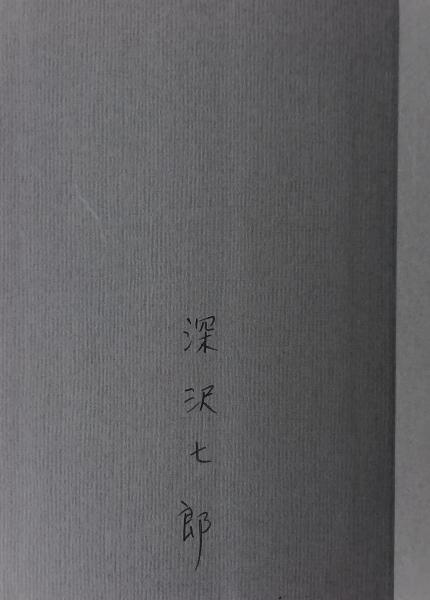 深沢七郎